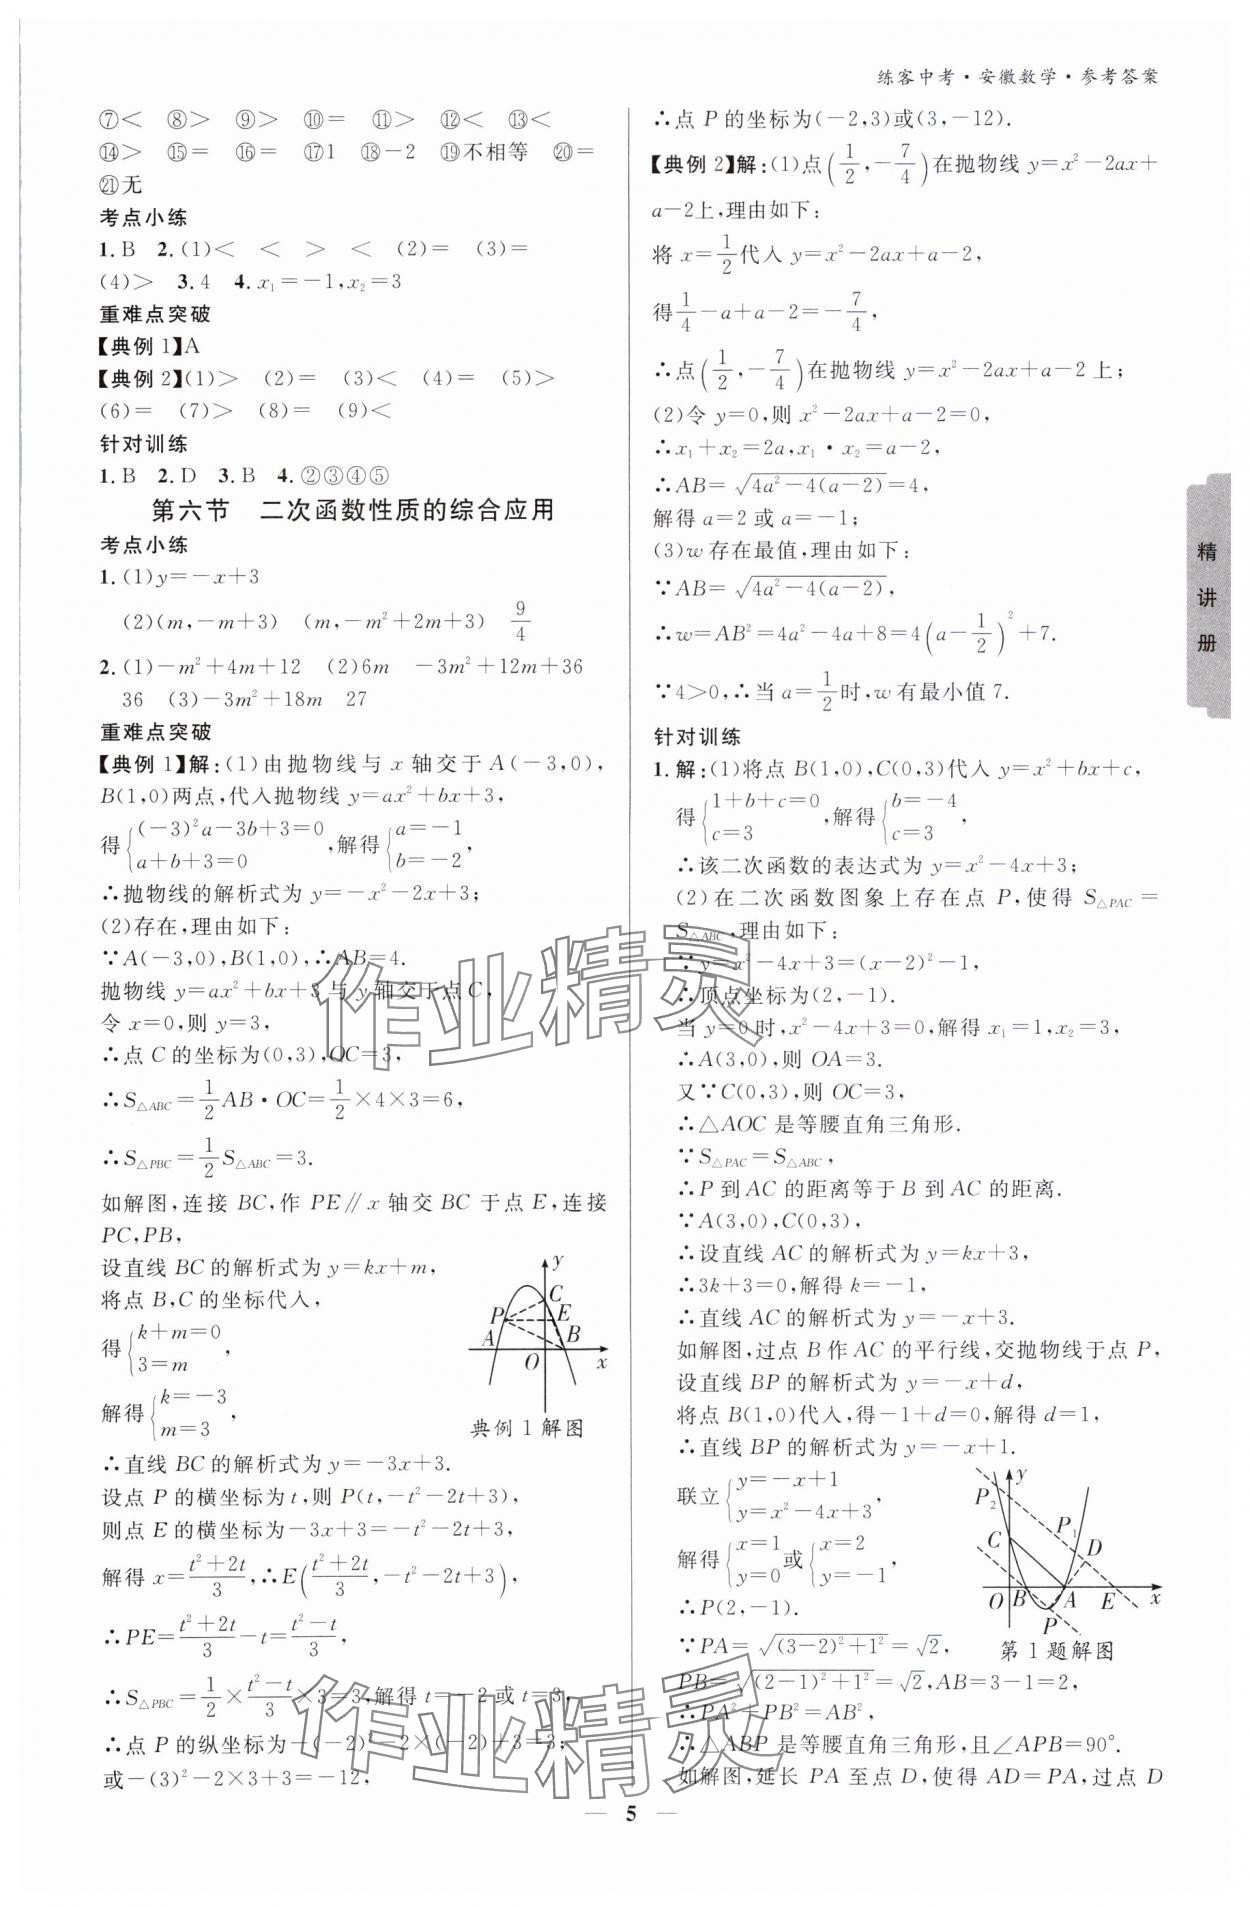 练客中考·安徽数学·参考答案
⑦< ⑧> ⑨> ⑩= ⑪> ⑫< ⑬<
⑭> ⑮= ⑯= ⑰1 ⑱-2 ⑲不相等 ⑳=
㉑无
考点小练
1. B 2. (1)< < > < (2)= (3)=
(4)> 3. 4 4. x₁=-1,x₂=3
重难点突破
【典例1】A
【典例2】(1)> (2)= (3)< (4)= (5)>
(6)= (7)> (8)= (9)<
针对训练
1. B 2. D 3. B 4. ②③④⑤
第六节 二次函数性质的综合应用
考点小练
1. (1)y=-x+3
(2)(m,-m+3) (m,-m²+2m+3) 9/4
2. (1)-m²+4m+12 (2)6m -3m²+12m+36
36 (3)-3m²+18m 27
重难点突破
【典例1】解:(1)由抛物线与x轴交于A(-3,0),
B(1,0)两点,代入抛物线y=ax²+bx+3,
得{(-3)²a-3b+3=0 a+b+3=0,解得{a=-1 b=-2,
∴抛物线的解析式为y=-x²-2x+3;
(2)存在,理由如下:
∵A(-3,0),B(1,0),∴AB=4.
抛物线y=ax²+bx+3与y轴交于点C,
令x=0,则y=3,
∴点C的坐标为(0,3),OC=3,
∴S△ABC=1/2AB·OC=1/2×4×3=6,
∴S△PBC=1/2S△ABC=3.
如解图,连接BC,作PE∥x轴交BC于点E,连接
PC,PB,
设直线BC的解析式为y=kx+m,
将点B,C的坐标代入,
得{k+m=0 3=m,
解得{k=-3 m=3,
y
C
P
E
A
B
O
x
典例1解图
∴直线BC的解析式为y=-3x+3.
设点P的横坐标为t,则P(t,-t²-2t+3),
则点E的横坐标为-3x+3=-t²-2t+3,
解得x=(t²+2t)/3,∴E((t²+2t)/3,-t²-2t+3),
∴PE=(t²+2t)/3-t=(t²-t)/3,
∴S△PBC=1/2×(t²-t)/3×3=3,解得t=-2或t=3,
∴点P的纵坐标为-(-2)²-2×(-2)+3=3;
或-(3)²-2×3+3=-12,
∴点P的坐标为(-2,3)或(3,-12).
【典例2】解:(1)点(1/2,-7/4)在抛物线y=x²-2ax+
a-2上,理由如下:
将x=1/2代入y=x²-2ax+a-2,
得1/4-a+a-2=-7/4,
∴点(1/2,-7/4)在抛物线y=x²-2ax+a-2上;
(2)令y=0,则x²-2ax+a-2=0,
∴x₁+x₂=2a,x₁·x₂=a-2,
∴AB=√(4a²-4(a-2))=4,
解得a=2或a=-1;
(3)w存在最值,理由如下:
∵AB=√(4a²-4(a-2)),
∴w=AB²=4a²-4a+8=4(a-1/2)²+7.
∵4>0,∴当a=1/2时,w有最小值7.
针对训练
1. 解:(1)将点B(1,0),C(0,3)代入y=x²+bx+c,
得{1+b+c=0 c=3,解得{b=-4 c=3,
∴该二次函数的表达式为y=x²-4x+3;
(2)在二次函数图象上存在点P,使得S△PAC=
S△ABC,理由如下:
∵y=x²-4x+3=(x-2)²-1,
∴顶点坐标为(2,-1).
当y=0时,x²-4x+3=0,解得x₁=1,x₂=3,
∴A(3,0),则OA=3.
又∵C(0,3),则OC=3,
∴△AOC是等腰直角三角形.
∵S△PAC=S△ABC,
∴P到AC的距离等于B到AC的距离.
∵A(3,0),C(0,3),
∴设直线AC的解析式为y=kx+3,
∴3k+3=0,解得k=-1,
∴直线AC的解析式为y=-x+3.
如解图,过点B作AC的平行线,交抛物线于点P,
设直线BP的解析式为y=-x+d,
将点B(1,0)代入,得-1+d=0,解得d=1,
∴直线BP的解析式为y=-x+1.
联立{y=-x+1 y=x²-4x+3,
解得{x=1 y=0或{x=2 y=-1,
∴P(2,-1).
y
P₂
C
P₁
D
O
B
A
E
x
P
第1题解图
∵PA=√((3-2)²+1²)=√2,
PB=√((2-1)²+1²)=√2,AB=3-1=2,
∴PA²+PB²=AB²,
∴△ABP是等腰直角三角形,且∠APB=90°.
如解图,延长PA至点D,使得AD=PA,过点D
精讲册
作业精灵
作业精灵
5